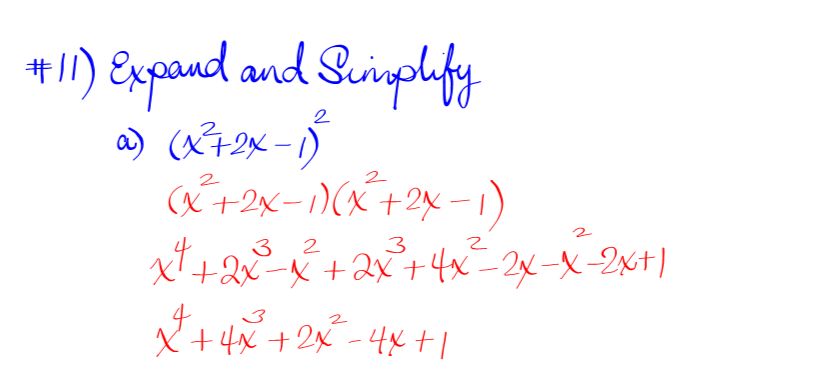 #11) Expand and Simplify
a) (x²+2x-1)²
(x²+2x-1)(x²+2x-1)
x⁴+2x³-x²+2x³+4x²-2x-x²-2x+1
x⁴+4x³+2x²-4x+1